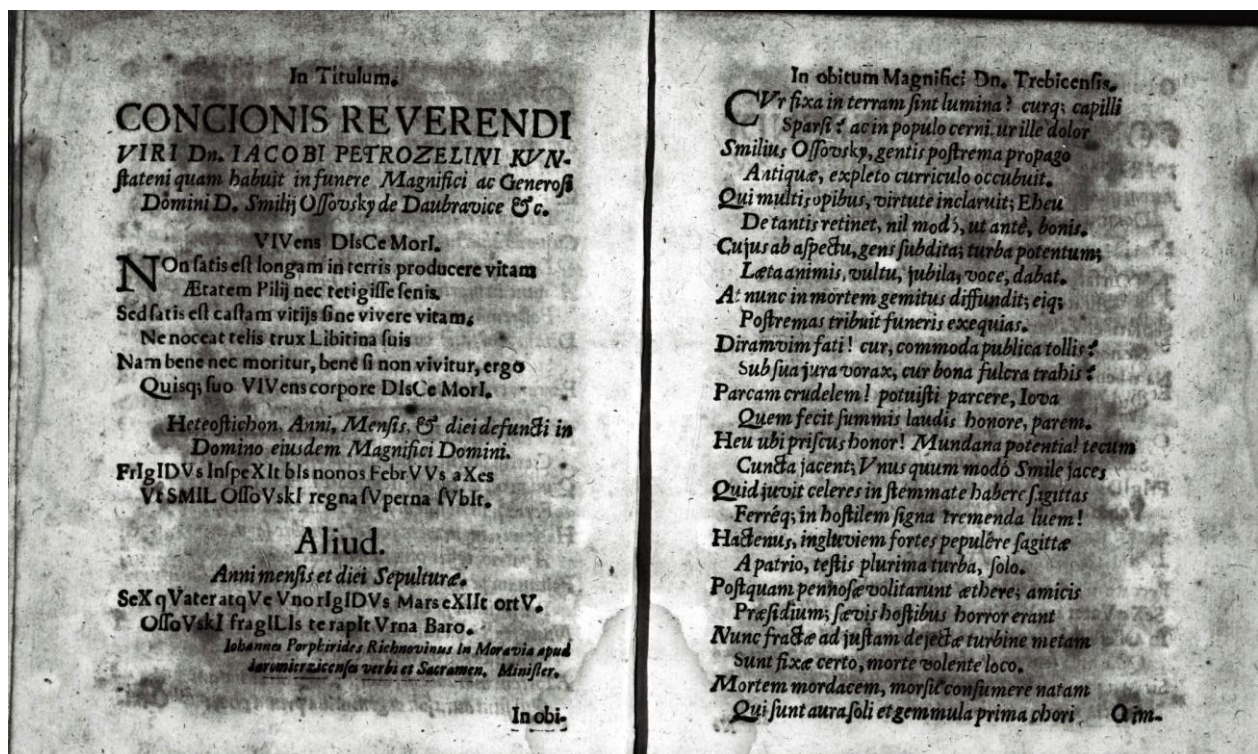 In Titulum.
CONCIONIS REVERENDI
VIRI Dn. IACOBI PETROZELINI KVN-
ſtateni quam habuit in funere Magnifici ac Generoſi
Domini D. Smilij Oſſovsky de Daubravice &c.
VIVens DIsCe MorI.
NOn ſatis eſt longam in terris producere vitam
Ætatem Pilij nec tetigiſſe ſenis.
Sed ſatis eſt caſtam vitijs ſine vivere vitam,
Ne noceat telis trux Libitina ſuis
Nam bene nec moritur, bene ſi non vivitur, ergo
Quisq; ſuo VIVens corpore DIsCe MorI.
Heteoſtichon Anni, Menſis, & diei defuncti in
Domino eiusdem Magnifici Domini.
FrIgIDVs InſpeXIt bIs nonos FebrVVs aXes
Vt SMIL OſſoVskI regna ſVperna ſVbIt.
Aliud.
Anni mensis et diei Sepulturæ.
SeX qVater atqVe Vno rIgIDVs Mars eXIIt ortV.
OſſoVskI fragILIs te rapIt Vrna Baro.
Iohannes Porphirides Richnovinus In Moravia apud
Jaromierzicenſes verbi et Sacramen. Miniſter.
In obi-
In obitum Magnifici Dn. Trebicenſis.
CVr fixa in terram ſint lumina? curq; capilli
Sparſi? ac in populo cerni.ur ille dolor
Smilius Oſſovsky, gentis poſtrema propago
Antiquæ, expleto curriculo occubuit.
Qui multis opibus, virtute inclaruit; Eheu
De tantis retinet, nil modò, ut antè, bonis.
Cujus ab aſpectu, gens ſubdita; turba potentum;
Læta animis, vultu, jubila, voce, dabat.
At nunc in mortem gemitus diffundit; eiq;
Poſtremas tribuit funeris exequias.
Diram vim fati! cur, commoda publica tollis?
Sub ſua jura vorax, cur bona fulcra trahis?
Parcam crudelem! potuiſti parcere, Iova
Quem fecit ſummis laudis honore, parem.
Heu ubi priſcus honor! Mundana potentia! tecum
Cuncta jacent; Vnus quum modò Smile jaces
Quid juvit celeres in ſtemmate habere ſagittas
Ferréq; in hoſtilem ſigna tremenda luem!
Hactenus, ingluviem fortes pepulêre ſagittæ
A patrio, teſtis plurima turba, ſolo.
Poſtquam pennoſæ volitarunt æthere; amicis
Præſidium; ſævis hoſtibus horror erant
Nunc fractæ ad juſtam dejectæ turbine metam
Sunt fixæ certo, morte volente loco.
Mortem mordacem, morſu conſumere natam
Qui ſunt aura ſoli et gemmula prima chori
O im-